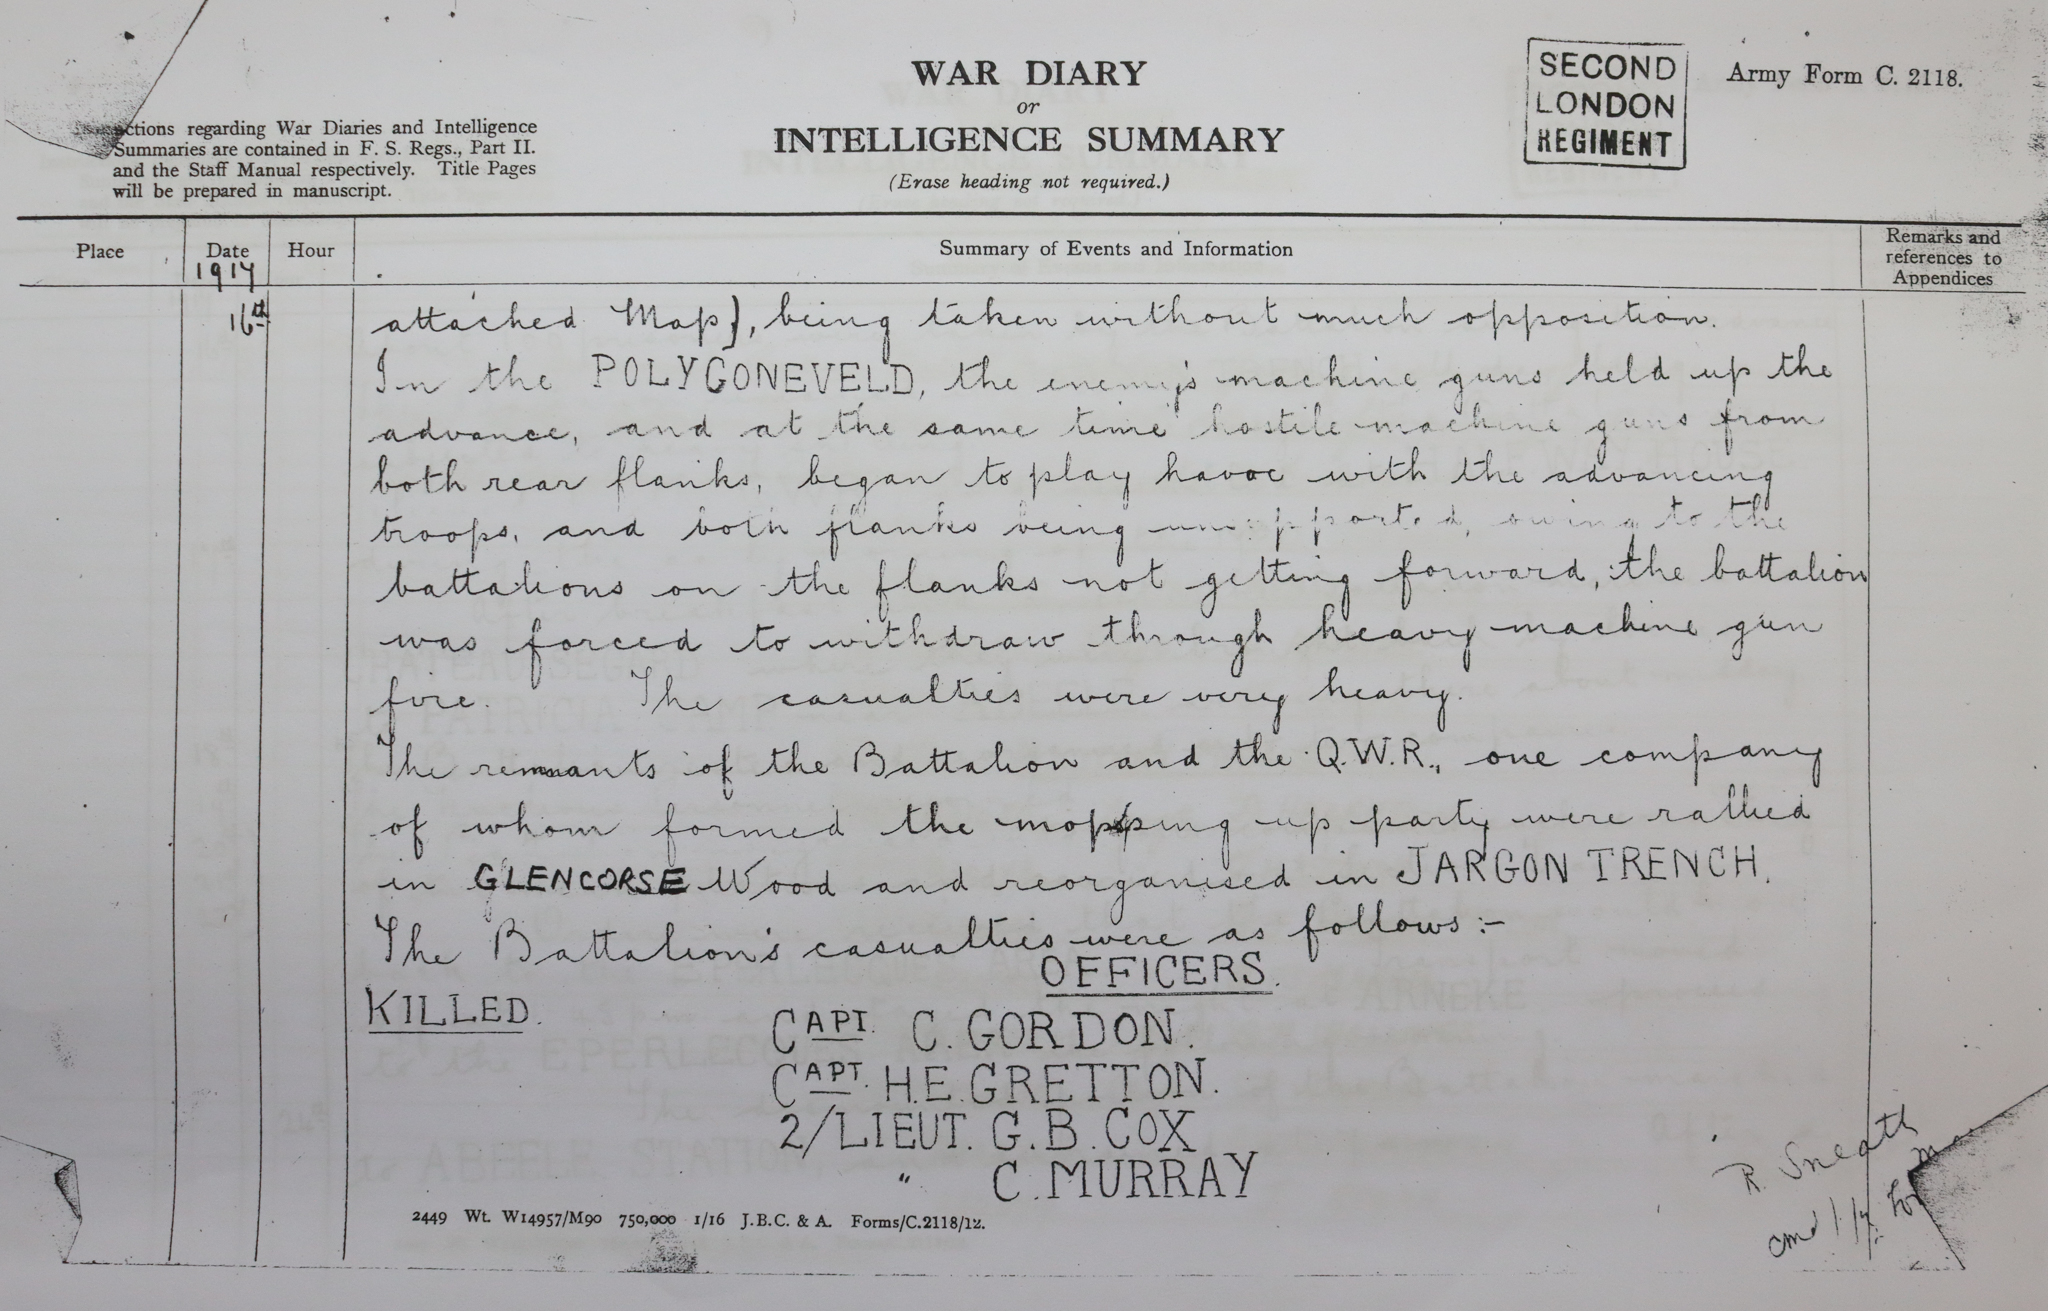 WAR DIARY
or
INTELLIGENCE SUMMARY
(Erase heading not required.)
SECOND
LONDON
REGIMENT
Army Form C. 2118.
ctions regarding War Diaries and Intelligence
Summaries are contained in F. S. Regs., Part II.
and the Staff Manual respectively. Title Pages
will be prepared in manuscript.
Place
Date
1917
Hour
Summary of Events and Information
Remarks and
references to
Appendices
16th
attached Map), being taken without much opposition.
In the POLYGONEVELD, the enemy's machine guns held up the
advance, and at the same time hostile machine guns from
both rear flanks, began to play havoc with the advancing
troops, and both flanks being unsupported, owing to the
battalions on the flanks not getting forward, the battalion
was forced to withdraw through heavy machine gun
fire. The casualties were very heavy.
The remnants of the Battalion and the Q.W.R., one company
of whom formed the mopping up party were rallied
in GLENCORSE Wood and reorganised in JARGON TRENCH.
The Battalion's casualties were as follows:-
OFFICERS.
KILLED.
CAPT. C. GORDON.
CAPT. H.E. GRETTON.
2/LIEUT. G.B. COX
" C. MURRAY
2449 Wt. W14957/M90 750,000 1/16 J.B.C. & A. Forms/C.2118/12.
R. Sneath